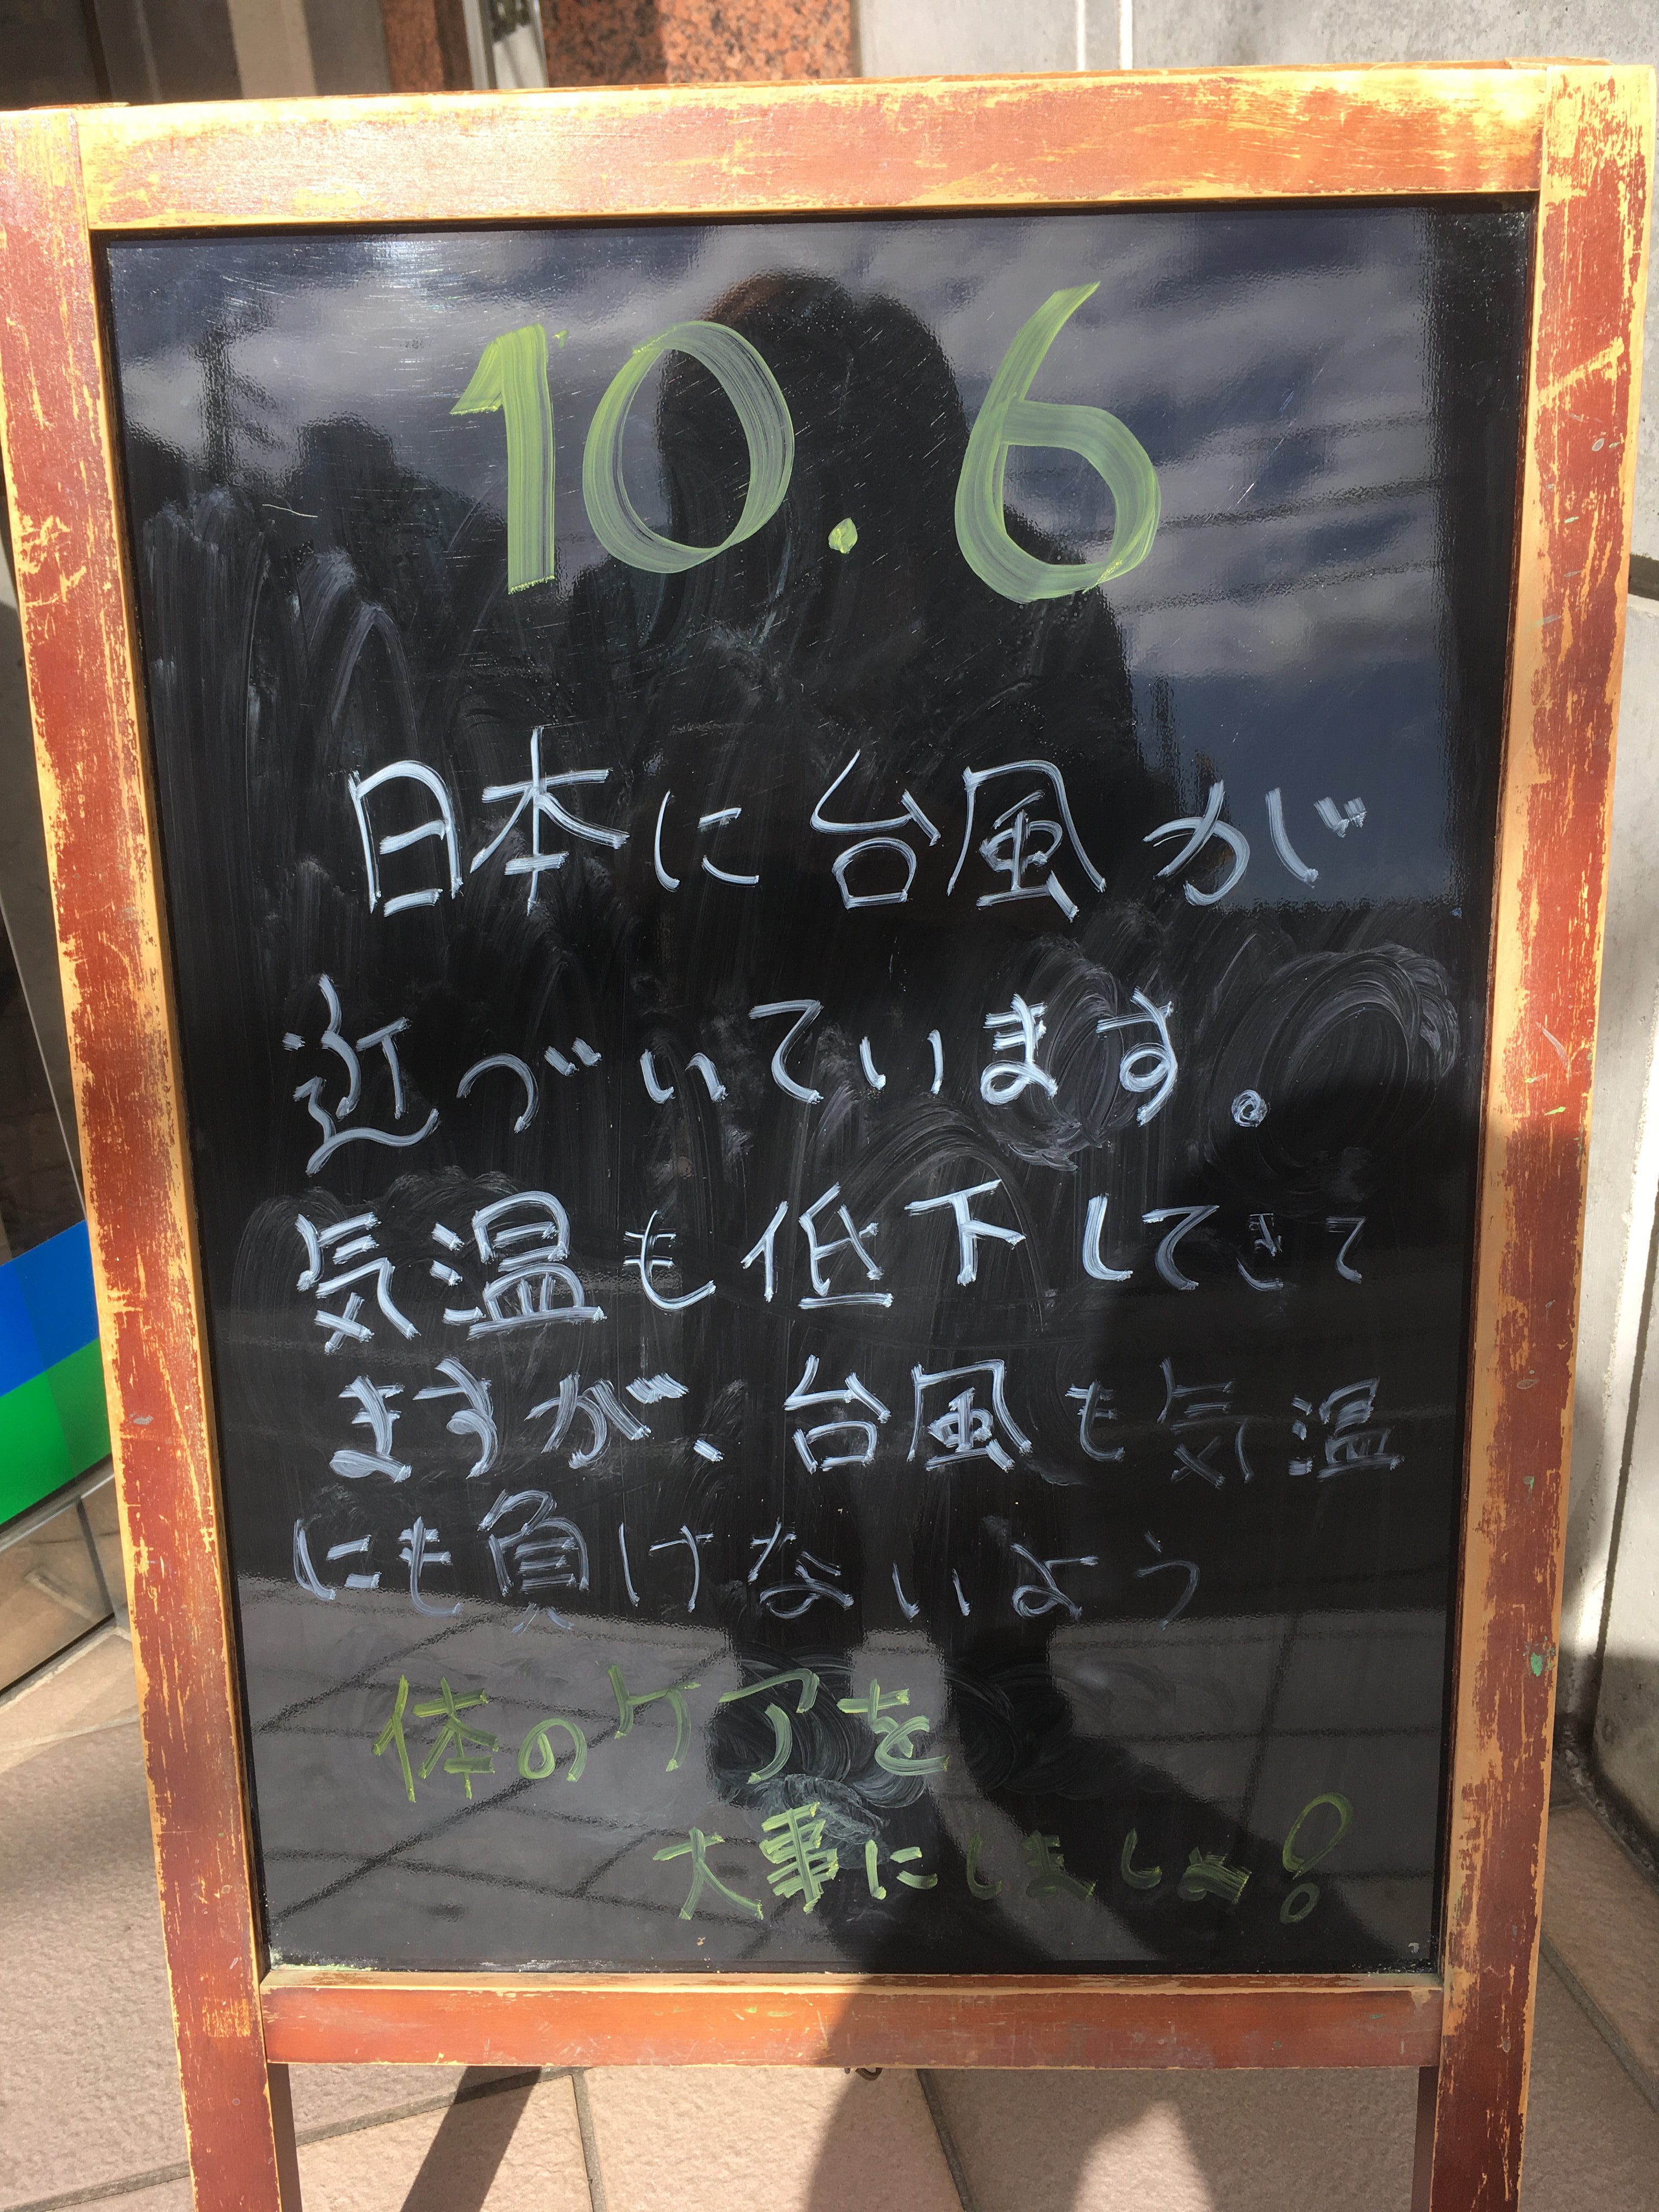 10.6
日本に台風が
近づいています。
気温も低下してきて
ますが、台風も気温
にも負けないよう
体のケアを
大事にしましょ!